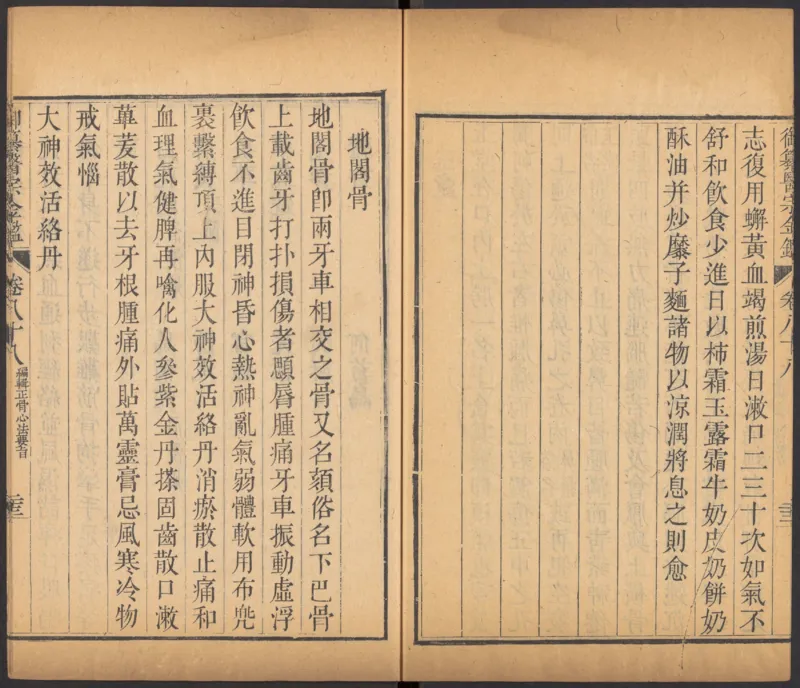 御纂醫宗金鑑 卷八十八
志復用蠏黃血竭煎湯日漱口二三十次如氣不
舒和飲食少進日以柿霜玉露霜牛奶皮奶餅奶
酥油并炒糜子麵諸物以涼潤將息之則愈
地閣骨
地閣骨卽兩牙車相交之骨又名頦俗名下巴骨
上載齒牙打扑損傷者顋脣腫痛牙車振動虛浮
飲食不進目閉神昏心熱神亂氣弱體軟用布兜
裹繫縛頂上內服大神效活絡丹消瘀散止痛和
血理氣健脾再噙化人參紫金丹搽固齒散口漱
蓽茇散以去牙根腫痛外貼萬靈膏忌風寒冷物
戒氣惱
大神效活絡丹
御纂醫宗金鑑 卷八十八 編輯正骨心法要旨